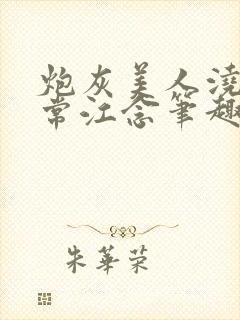 炮灰美人浇
常江念笔趣
朱华荣